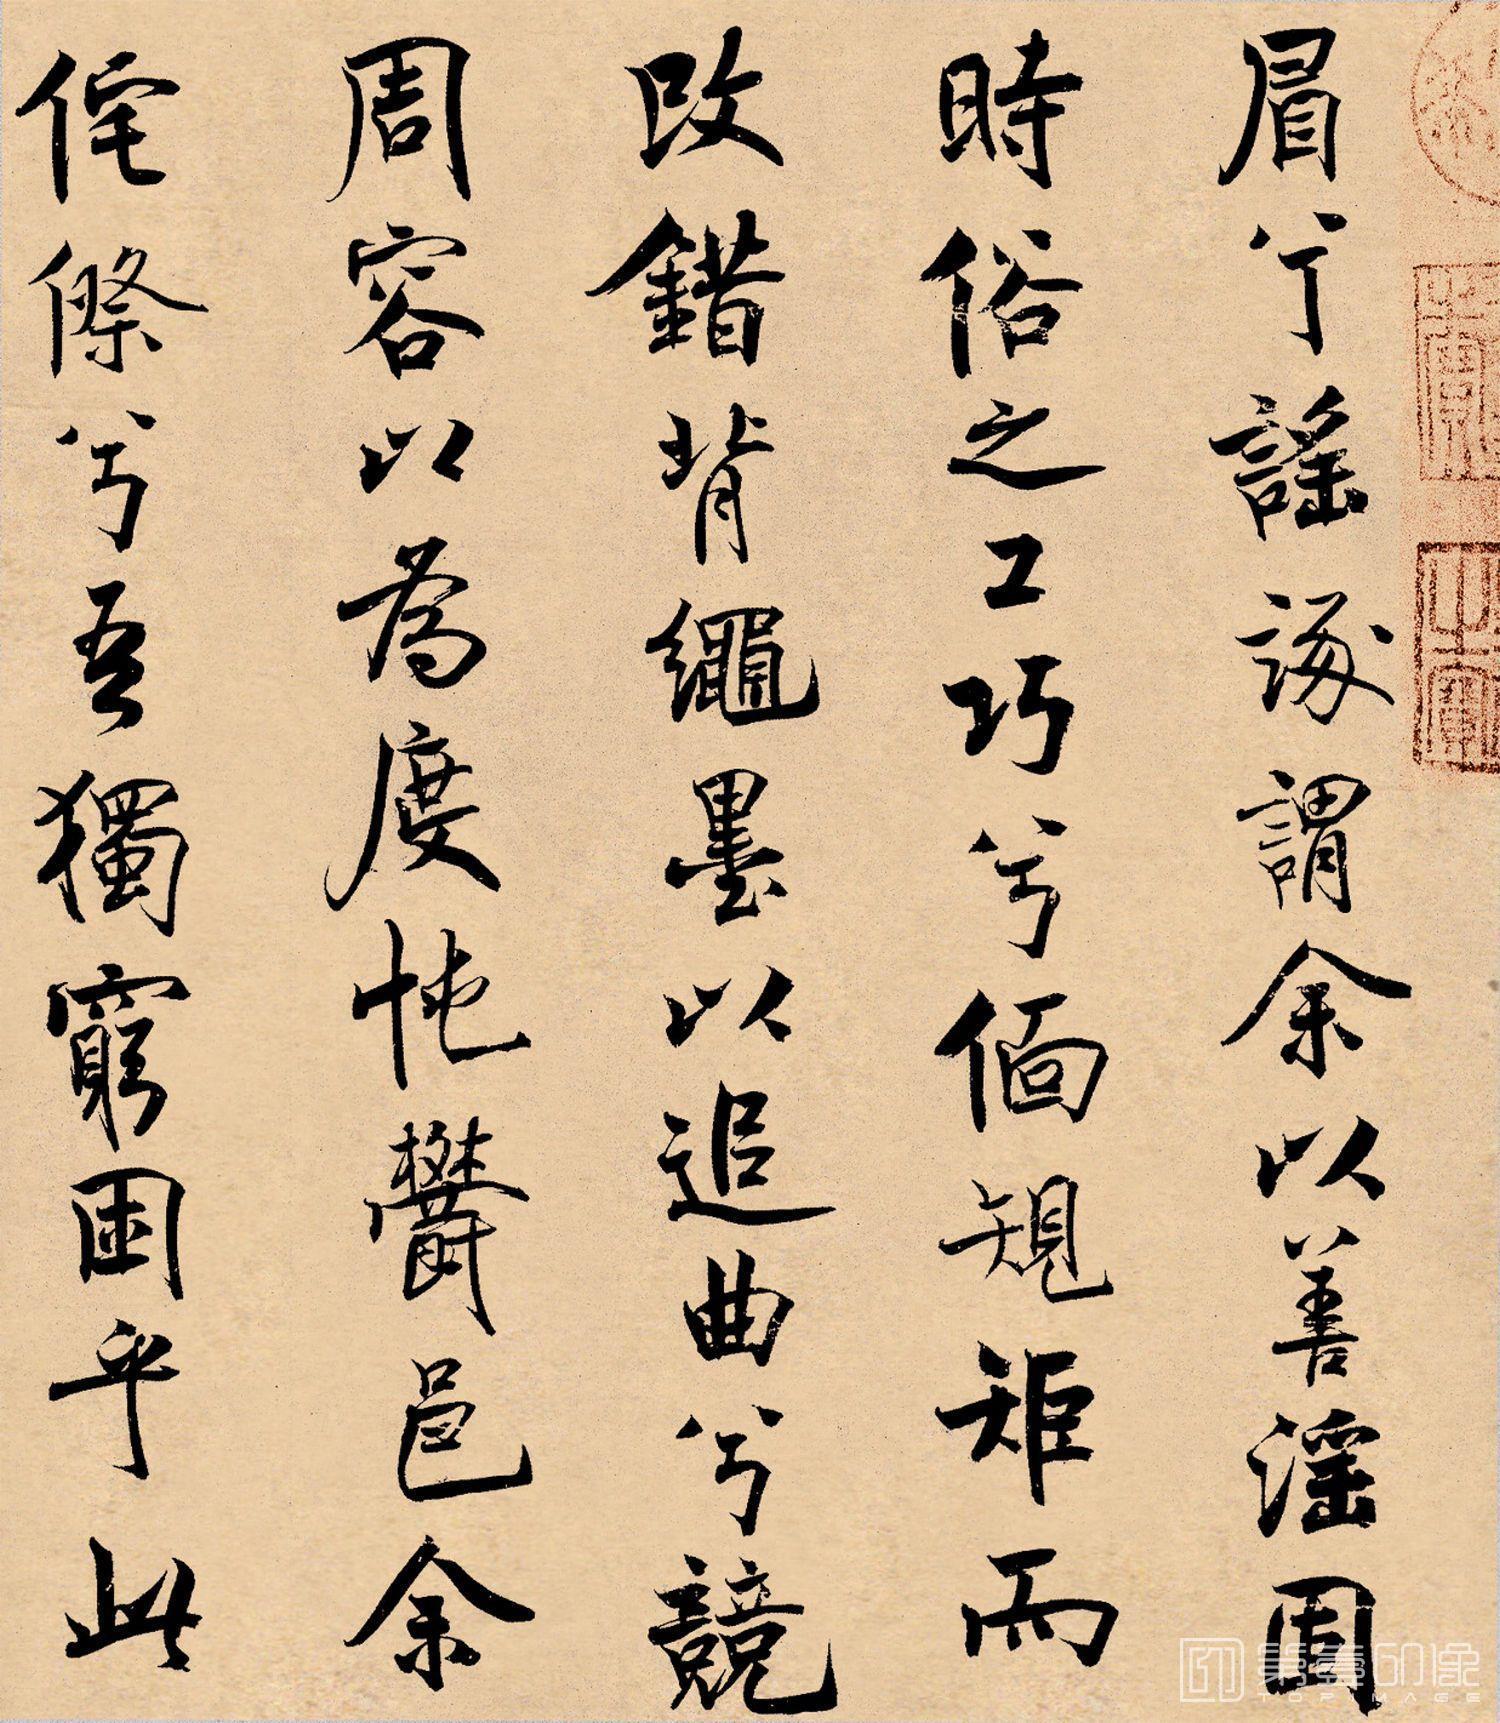 眉兮謠諑謂余以善淫固
時俗之工巧兮偭規矩而
改錯背繩墨以追曲兮競
周容以為度忳鬱邑余
侘傺兮吾獨窮困乎此
第壹印像
TOP IMAGE